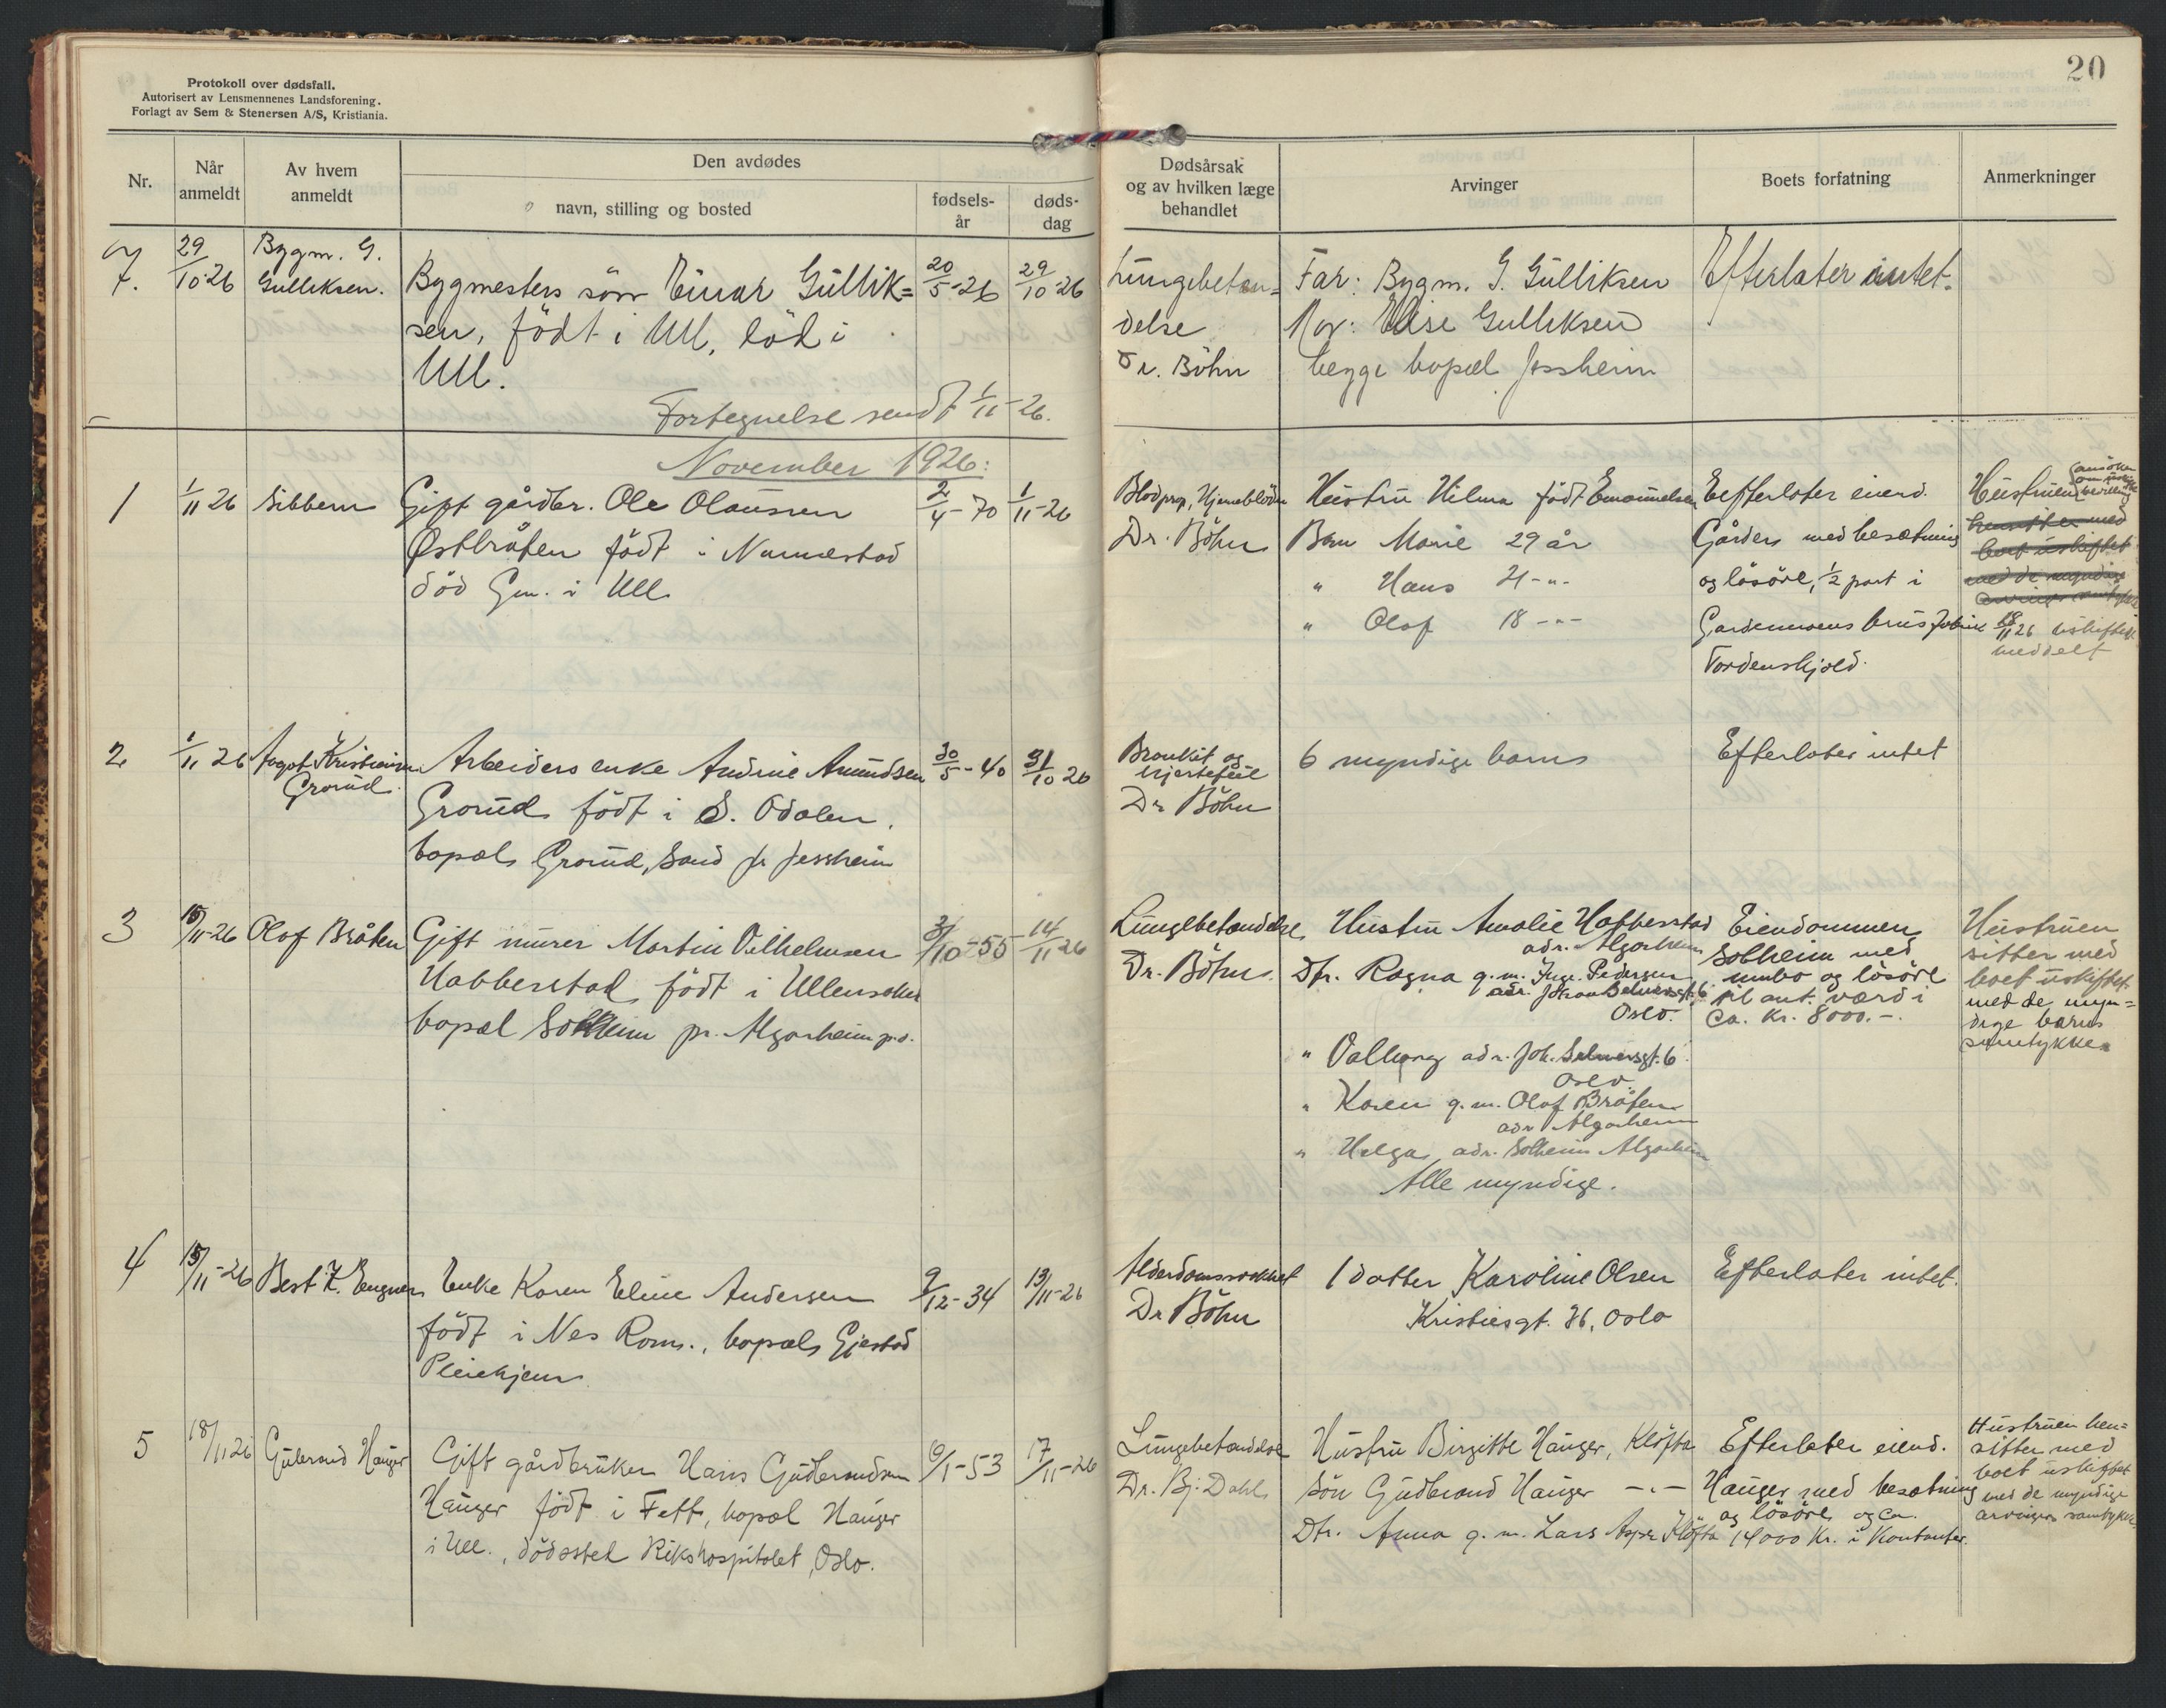 Protokoll over dødsfall.
Autorisert av Lensmennenes Landsforening.
Forlagt av Sem & Stenersen A/S, Kristiania.
20
Nr.
Når anmeldt
Av hvem anmeldt
Den avdødes
navn, stilling og bosted
fødsels-år
døds-dag
Dødsårsak og av hvilken læge behandlet
Arvinger
Boets forfatning
Anmerkninger
7.
29/10-26
Bygm. G.
Gulliksen.
Bygmesters sön Einar Gullik=
sen, födt i Ull, död i
Ull.
20/5-26
29/10-26
Lungebetæn=
delse
Dr. Böhn
Far: Bygm. G. Gulliksen
Mor: Elise Gulliksen
begge bopæl Jessheim
Efterlater intet.
Fortegnelse sendt 1/11-26.
November 1926:
1
1/11 26
Sibbern
Gift gårdbr. Ole Olaussen
Østbråten födt i Nannestad
död Gm. i Ull
2/4-70
1/11-26
Blodprop, Hjerneblödn
Dr. Böhn
Hustru Hilma födt Emanuelsen
Barn Marie 29 år
" Hans 21 -"-
" Olaf 18 -"-
Eefterlater eiend.
Gårders med besætning
og lösöre, 1/2 part i
Gardermoens brusfabrik
Tordenskjold.
Hustruen
ansöker
om
bevilling
med
boet uskiftet
med de myndige
18/11 26 uskiftet
meddelt
2
1/11 26
Aagot Kristiansen
Grorud.
Arbeiders enke Andrine Amundsen
Grorud födt i S. Odalen.
bopæl Grorud, Sand pr Jessheim
30/5-40
31/10 26
Bronkit og
hjertefeil
Dr Böhn
6 myndige barn
Efterlater intet
3
15/11-26
Olaf Bråten
Gift murer Martin Vilhelmsen
Habberstad födt i Ullensaker
bopæl Solheim pr. Algarheim p.o.
31/10-55
14/11 26
Lungebetændelse
Dr. Böhn.
Hustru Amalie Habberstad
adr. Algarheim
Dtr. Ragna g.m. Inge Pedersen
adr. Johan Selmersgt. 6
Oslo.
" Valborg adr. Joh. Selmersgt. 6
Oslo.
" Karen g.m. Olaf Bråten
adr Algarheim
" Helga adr. Solheim Algarheim
Alle myndige.
Eiendommen
Solheim med
innbo og lösöre
til ant. værdi
ca. kr. 8000.-.
Hustruen
sitter med
boet uskiftet.
med de myn=
dige barns
samtykke
4
15/11-26
Best. Z. Engnes
Enke Karen Eline Andersen
födt i Nes Rom., bopæl Gjestad
Pleiehjem
9/12-34
13/11-26
Alderdomssvakhet
Dr Böhn
1 datter Karoline Olsen
Kristiesgt. 36, Oslo
Efterlater intet.
5
18/11 26
Gulbrand Hauger
Gift gårdbruker Hans Gudbrandsen
Hauger födt i Fett, bopæl Hauger
i Ull., dödssted Rikshospitalet, Oslo.
6/1-53
17/11-26
Lungebetændelse
Dr. Bj. Dahl
Hustru Birgitte Hauger, Klöfta
Sön Gudbrand Hauger -"-
Dtr. Anna g.m. Lars Asper Klöfta
Efterlater eiend.
Hauger med besætning
og lösöre og ca.
14000 Kr. i Kontanter.
Hustruen hen=
sitter med
boet uskiftet
med de myndige
arvingers samtykke.